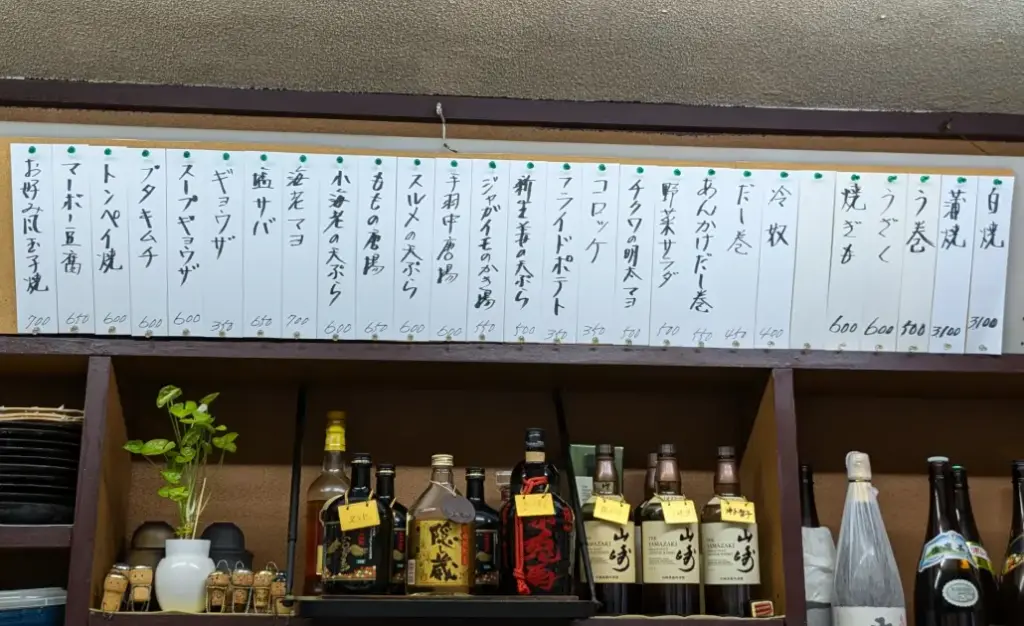 白焼 3100
蒲焼 3100
う巻 500
うざく 600
焼ぎも 600
冷奴 400
だし巻 450
あんかけだし巻 550
野菜サラダ 500
チクワの明太マヨ 500
コロッケ 350
フライドポテト 350
新生姜の天ぷら 500
ジャガイモのかき揚 550
手羽中唐揚 600
スルメの天ぷら 600
ももの唐揚 650
小海老の天ぷら 600
海老マヨ 700
塩サバ 650
ギョウザ 350
スープギョウザ 600
ブタキムチ 600
トンペイ焼 600
マーボー豆腐 650
お好み風玉子焼 700
隠し蔵
山崎
THE YAMAZAKI
山崎
THE YAMAZAKI
山崎